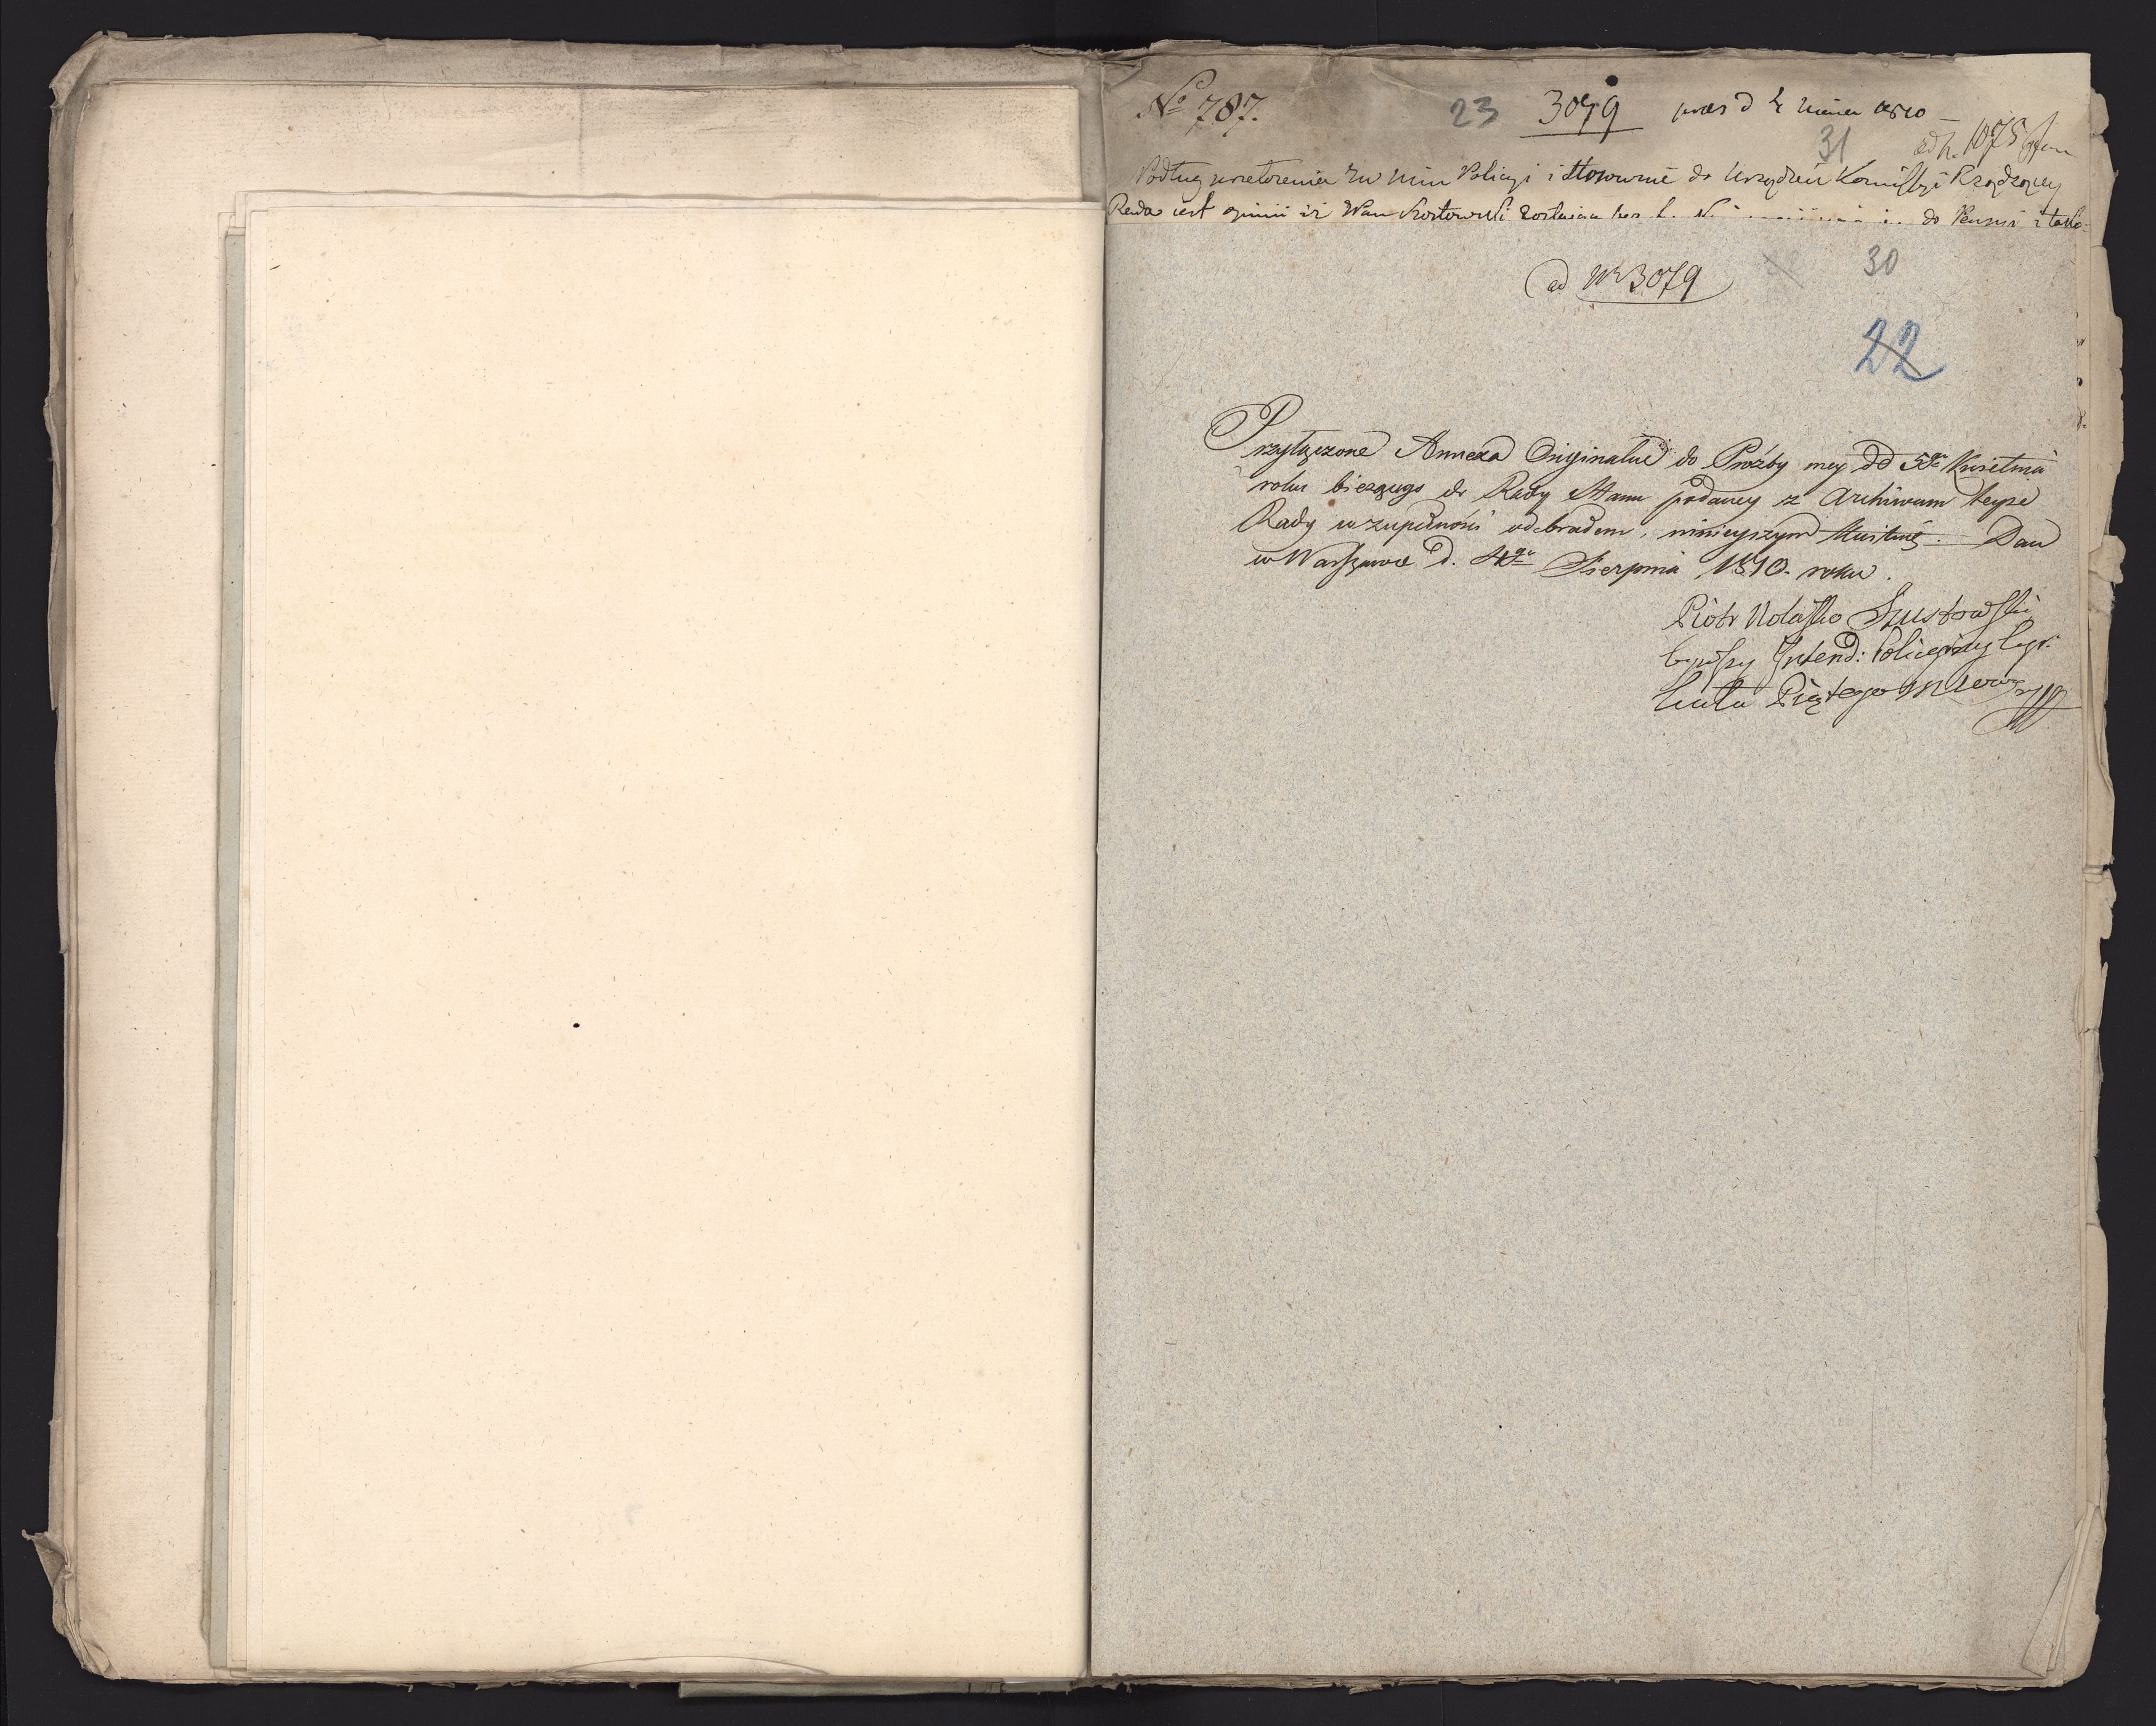 No 787.
23 3079 praes d 4 1810
31 ad N. 1075
Podług Min Policyi i stosownie do Urządzeń Kommissyi Rządzącey
Rada iest opinii iż do Pensyi i
ad Nr 3079
30
22
Przyłączone Annexa Originalne do Proźby mey dd 5go Kwietnia
roku bieżącego do Rady Stanu podaney z Archiwum teyże
Rady w zupełności odebrałem, ninieyszym kwituię. Dan
w Warszawie d. 4go Sierpnia 1810. roku.
Piotr Nolasko Szustowski
bywszy Intend: Policyiny Cyr:
kułu Piątego